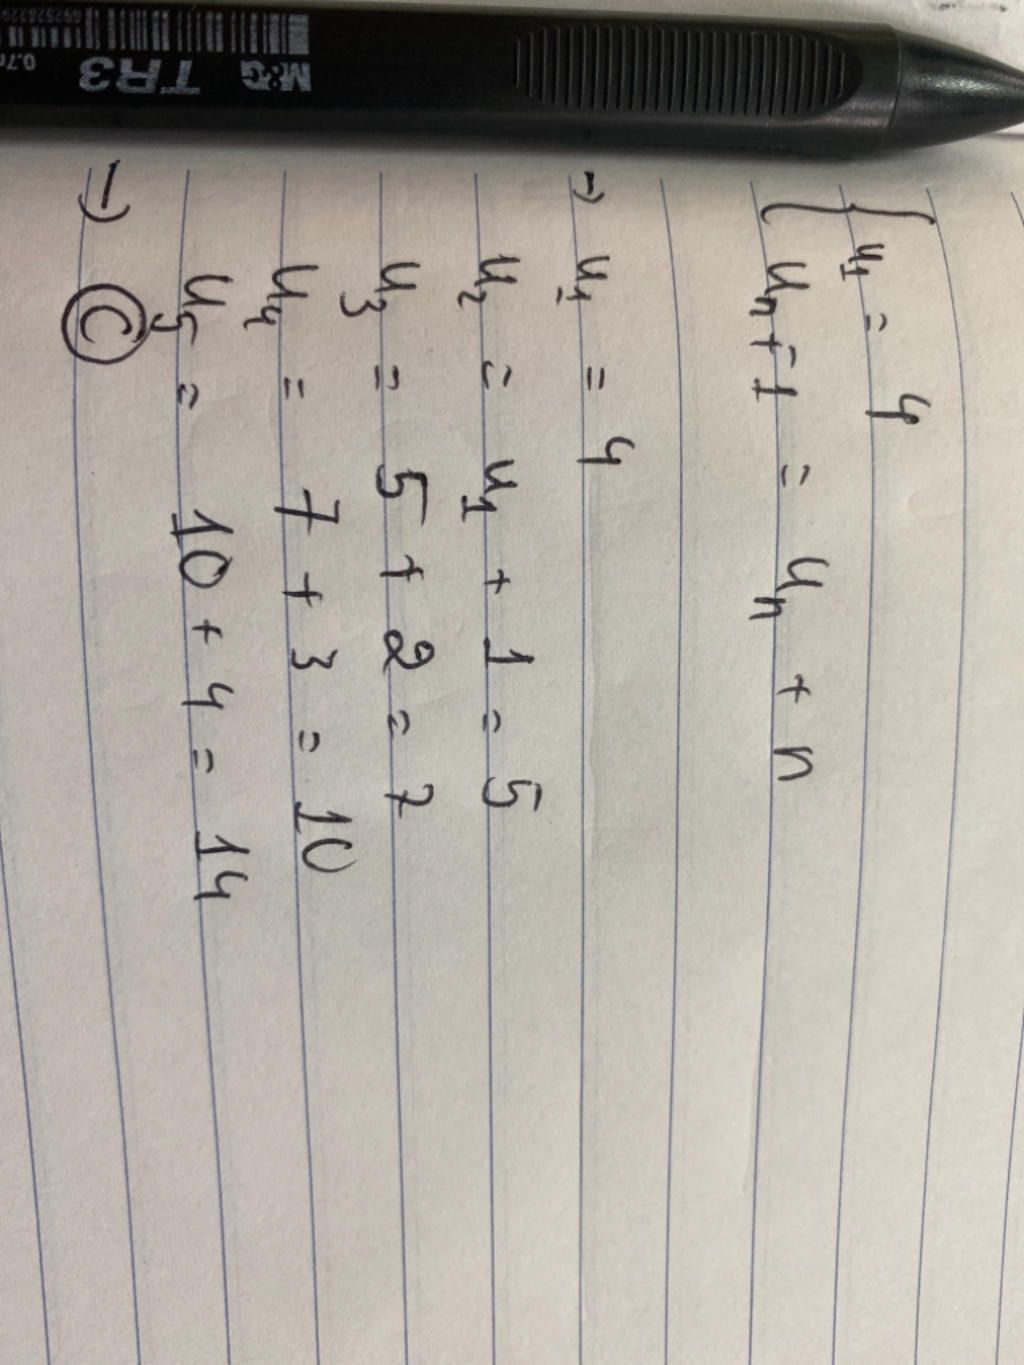 M&G TR3 0.7
{ u₁ = 4
u_{n+1} = u_n + n
→ u₁ = 4
u₂ = u₁ + 1 = 5
u₃ = 5 + 2 = 7
u₄ = 7 + 3 = 10
u₅ = 10 + 4 = 14
→ Ⓒ